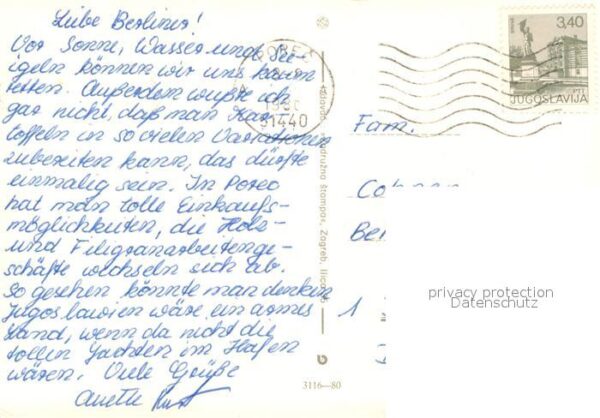 Liebe Berliner!
Vor Sonne, Wasser und See-
igeln können wir uns kaum
retten. Außerdem wußte ich
gar nicht, daß man Kar-
toffeln in so vielen Variationen
zubereiten kann, das dürfte
einmalig sein. In Porec
hat man tolle Einkaufs-
möglichkeiten, die Holz-
und Filigranarbeitenge-
schäfte wechseln sich ab.
So gesehen könnte man denken
Jugoslawien wäre ein armes
Land, wenn da nicht die
tollen Jachten im Hafen
wären. Viele Grüße
3,40
PTT
JUGOSLAVIJA
51440
Fam.
1
Zagreb, Ilica
3116—80
privacy protection
Datenschutz